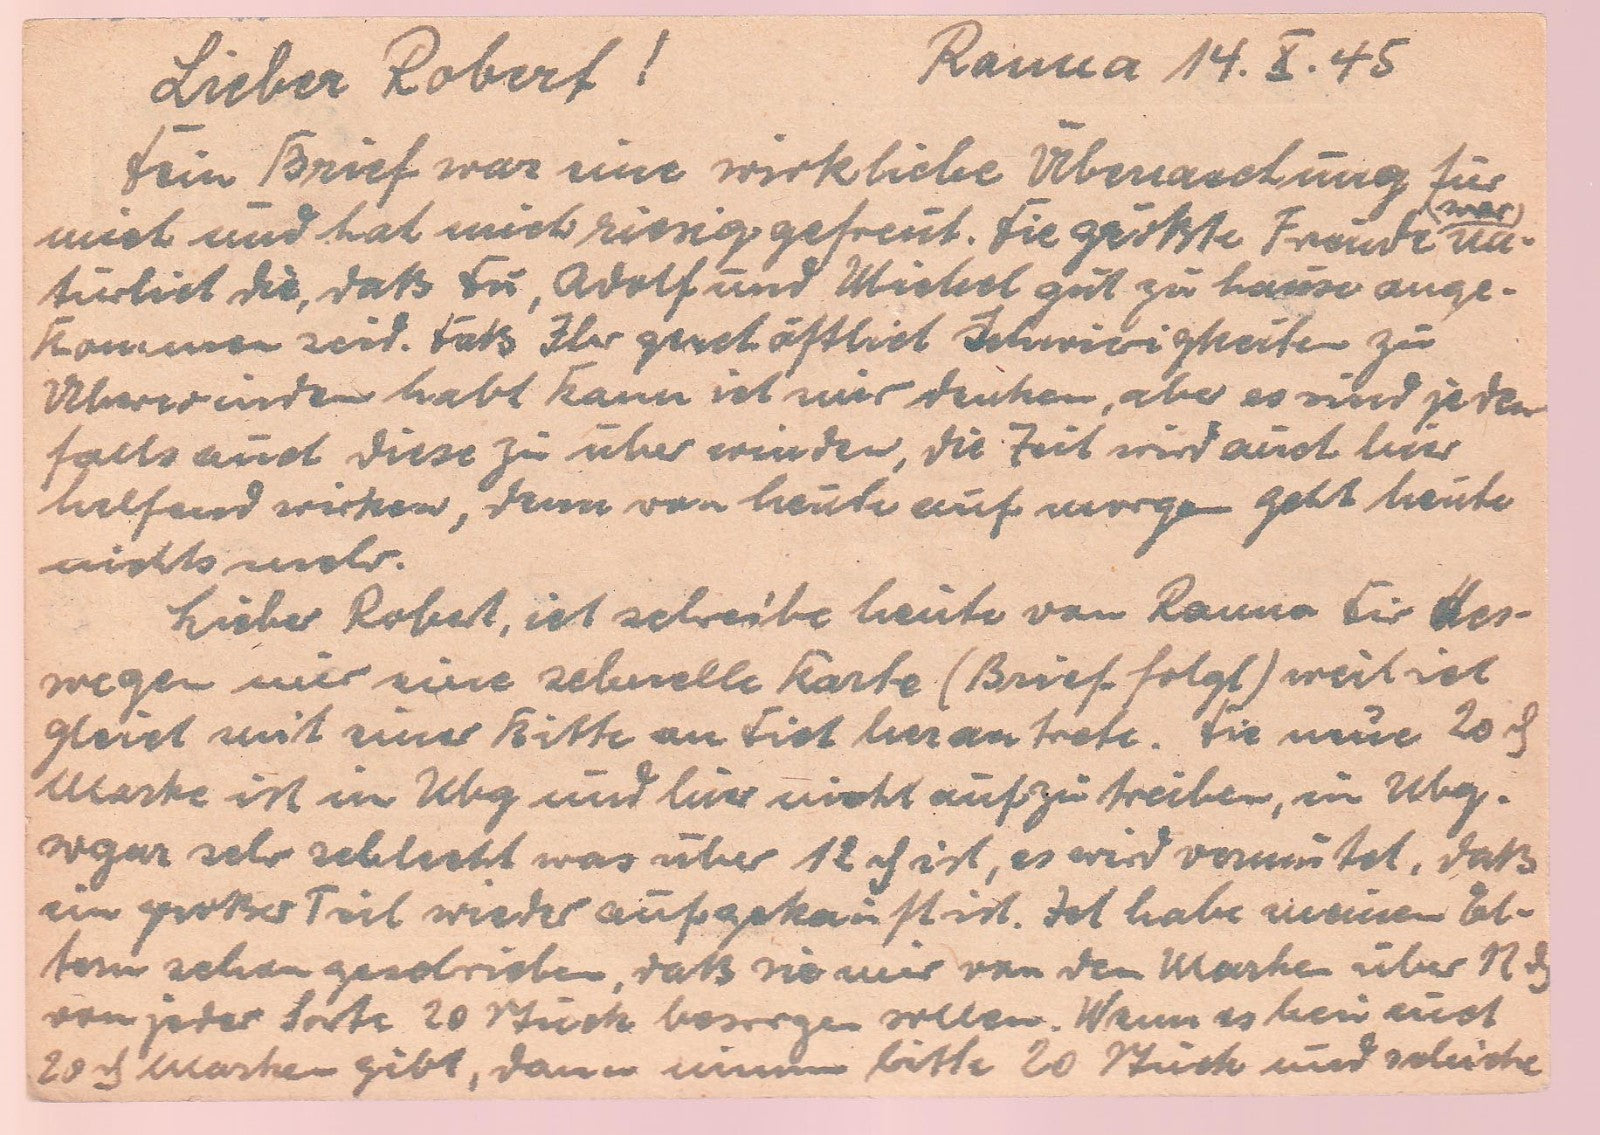 Lieber Robert! Ranna 14. X. 45
Dein Brief war eine wirkliche Überraschung für
mich und hat mich riesig gefreut. Die größte Freude (war) na-
türlich die, daß Du, Adolf und Michel gut zu hause ange-
kommen seid. Daß Ihr geschäftlich Schwierigkeiten zu
Überwinden habt kann ich mir denken, aber es sind jeden
falls auch diese zu überwinden, die Zeit wird auch hier
helfend wirken, denn von heute auf morgen geht heute
nichts mehr.
Lieber Robert, ich schreibe heute von Ranna Dir des-
wegen nur eine schnelle Karte (Brief folgt) weil ich
gleich mit einer Bitte an Dich heran trete. Die neue 20 ₰
Marke ist in Nbg und hier nicht aufzutreiben, in Nbg.
sogar sehr schlecht was über 12 ₰ ist, es wird vermutet, daß
ein großer Teil wieder aufgekauft ist. Ich habe meinen El-
tern schon geschrieben, daß sie mir von den Marken über 12 ₰
von jeder Sorte 20 Stück besorgen sollen. Wenn es bei euch
20 ₰ Marken gibt, dann nimm bitte 20 Stück und schicke